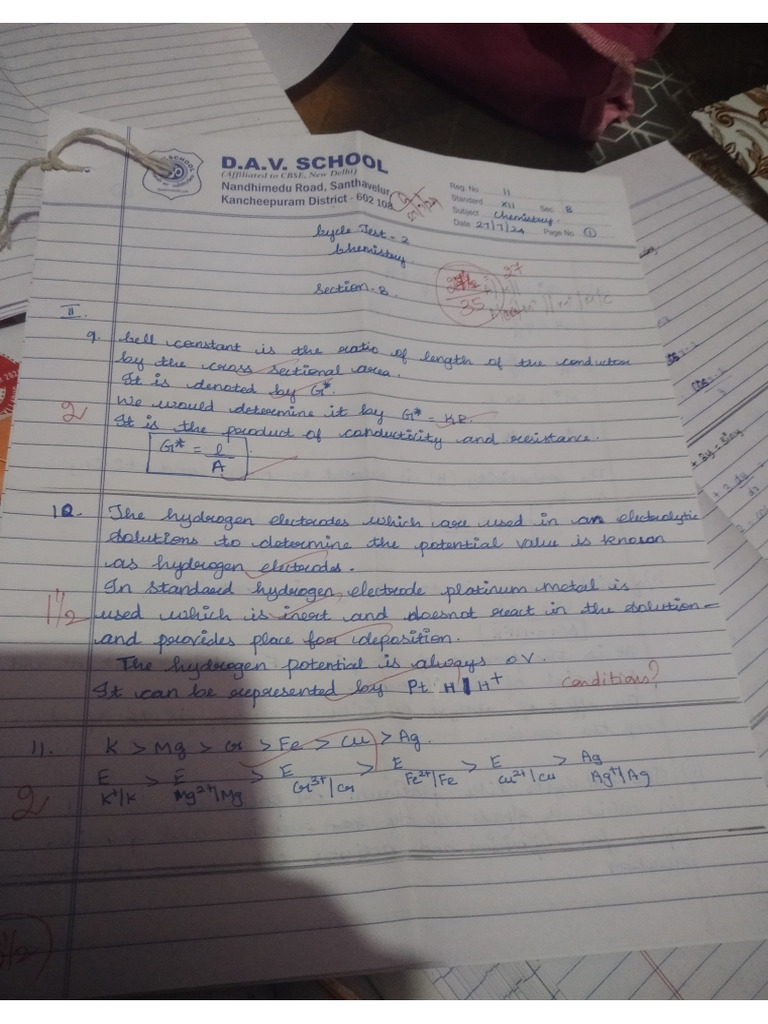 D.A.V. SCHOOL
(Affiliated to CBSE, New Delhi)
Nandhimedu Road, Santhavelur,
Kancheepuram District - 602 108
Reg. No 11
Standard XII Sec B
Subject Chemistry
Date 27/7/24 Page No 1
Cycle Test - 2
Chemistry
27
35
Section - B
II.
9. Cell constant is the ratio of length of the conductor
by the cross sectional area.
It is denoted by G*.
2 We would determine it by G* = KR.
It is the product of conductivity and resistance.
G* = l/A
10. The hydrogen electrodes which are used in an electrolytic
solutions to determine the potential value is known
as hydrogen electrodes.
In standard hydrogen electrode platinum metal is
1 1/2 used which is inert and doesnot react in the solution
and provides place for deposition.
The hydrogen potential is always 0V.
It can be represented by Pt H | H+ conditions?
11. K > Mg > Cr > Fe > Cu > Ag
E K+/K > E Mg2+/Mg > E Cr3+/Cr > E Fe2+/Fe > E Cu2+/Cu > Ag Ag+/Ag
2